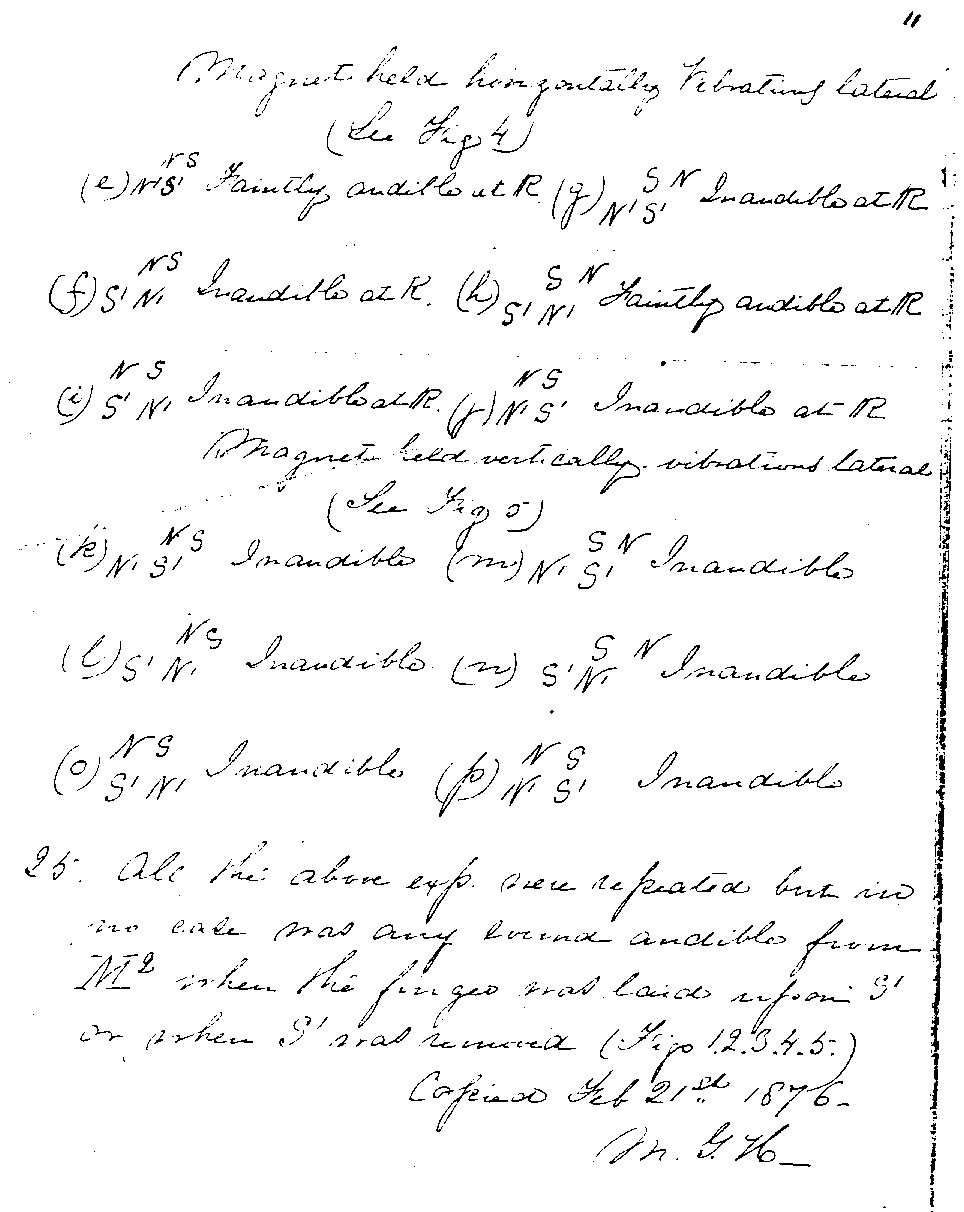 11
Magnet held horizontally Vibrations lateral
(See Fig 4)
N S
(e) N' S' Faintly audible at R (g) S N N' S' Inaudible at R
N S
(f) S' N' Inaudible at R. (h) S N S' N' Faintly audible at R
N S
(i) S' N' Inaudible at R. (j) N S N' S' Inaudible at R
Magnet held vertically. vibrations lateral
(See Fig 5)
N S
(k) N' S' Inaudible (m) S N N' S' Inaudible
N S
(l) S' N' Inaudible (n) S N S' N' Inaudible
N S
(o) S' N' Inaudible (p) N S N' S' Inaudible
25. All the above exp. were repeated but in
no case was any sound audible from
M² when the finger was laid upon S'
or when S' was removed (Figs 1.2.3.4.5.)
Copied Feb 21st 1876-
M. G. H-